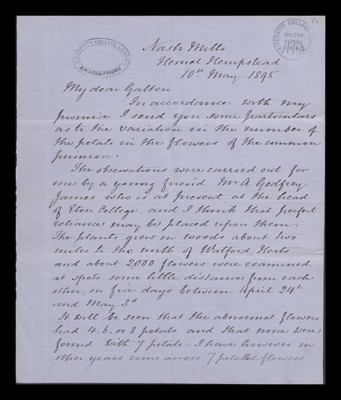 UNIVERSITY COLLEGE LONDON
GALTON PAPERS
Nash Mills
Hemel Hempstead
10th May 1895
My dear Galton
In accordance with my
promise I send you some particulars
as to the variation in the number of
the petals in the flowers of the common
primrose.
The observations were carried out for
me by a young friend Mr A Godfrey
James who is at present at the head
of Eton College and I think that perfect
reliance may be placed upon them.
The plants grew in woods about two
miles to the north of Watford, Herts
and about 2,000 flowers were examined
at spots some little distance from each
other, on five days between April 24th
and May 3d
It will be seen that the abnormal flowers
had 4, 6, or 8 petals and that none were
found with 7 petals. I have however in
other years come across 7 petalled flowers